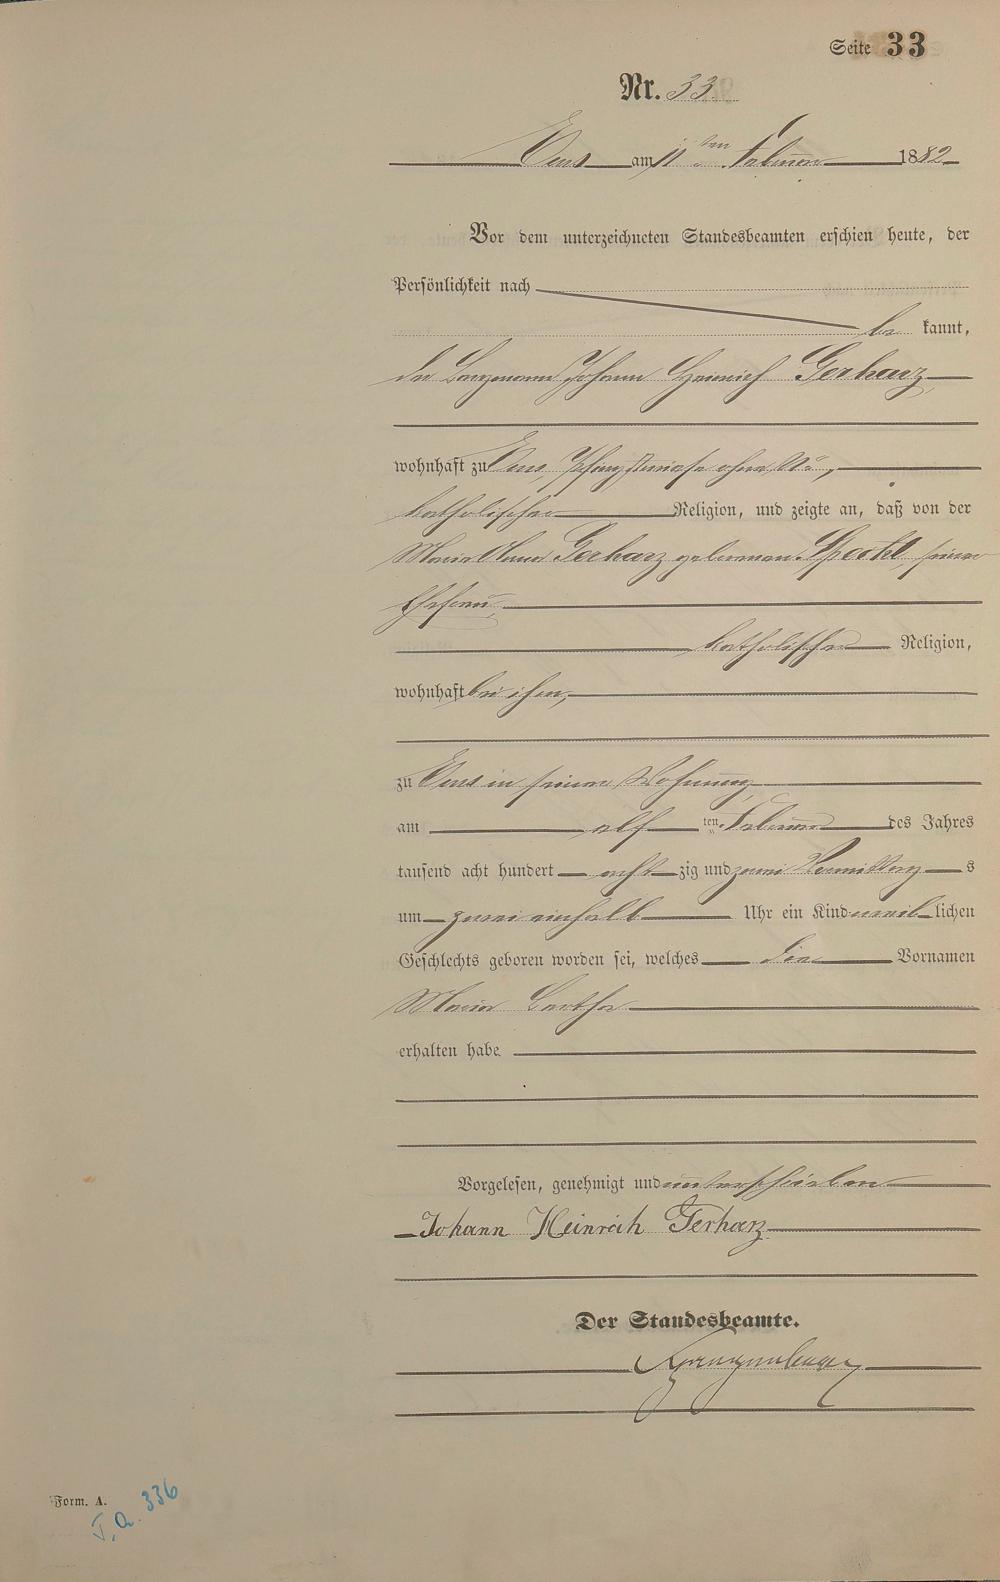 Seite 33
Nr. 33
Ems am 11ten Februar 1882
Vor dem unterzeichneten Standesbeamten erschien heute, der
Persönlichkeit nach
be kannt,
der Bergmann Johann Heinrich Gerharz,
wohnhaft zu Ems, Pfingstwiese ohne Nr.,
katholischer Religion, und zeigte an, daß von der
Maria Anna Gerharz geborenen Specht, seiner
Ehefrau,
katholischer Religion,
wohnhaft bei ihm,
zu Ems in seiner Wohnung,
am elf ten Februar des Jahres
tausend acht hundert acht zig und zwei Vormittag s
um zwei einhalb Uhr ein Kind weib lichen
Geschlechts geboren worden sei, welches die Vornamen
Maria
erhalten habe
Vorgelesen, genehmigt und unterschrieben
Johann Heinrich Gerharz
Der Standesbeamte.
Form. A.
I, a. 336